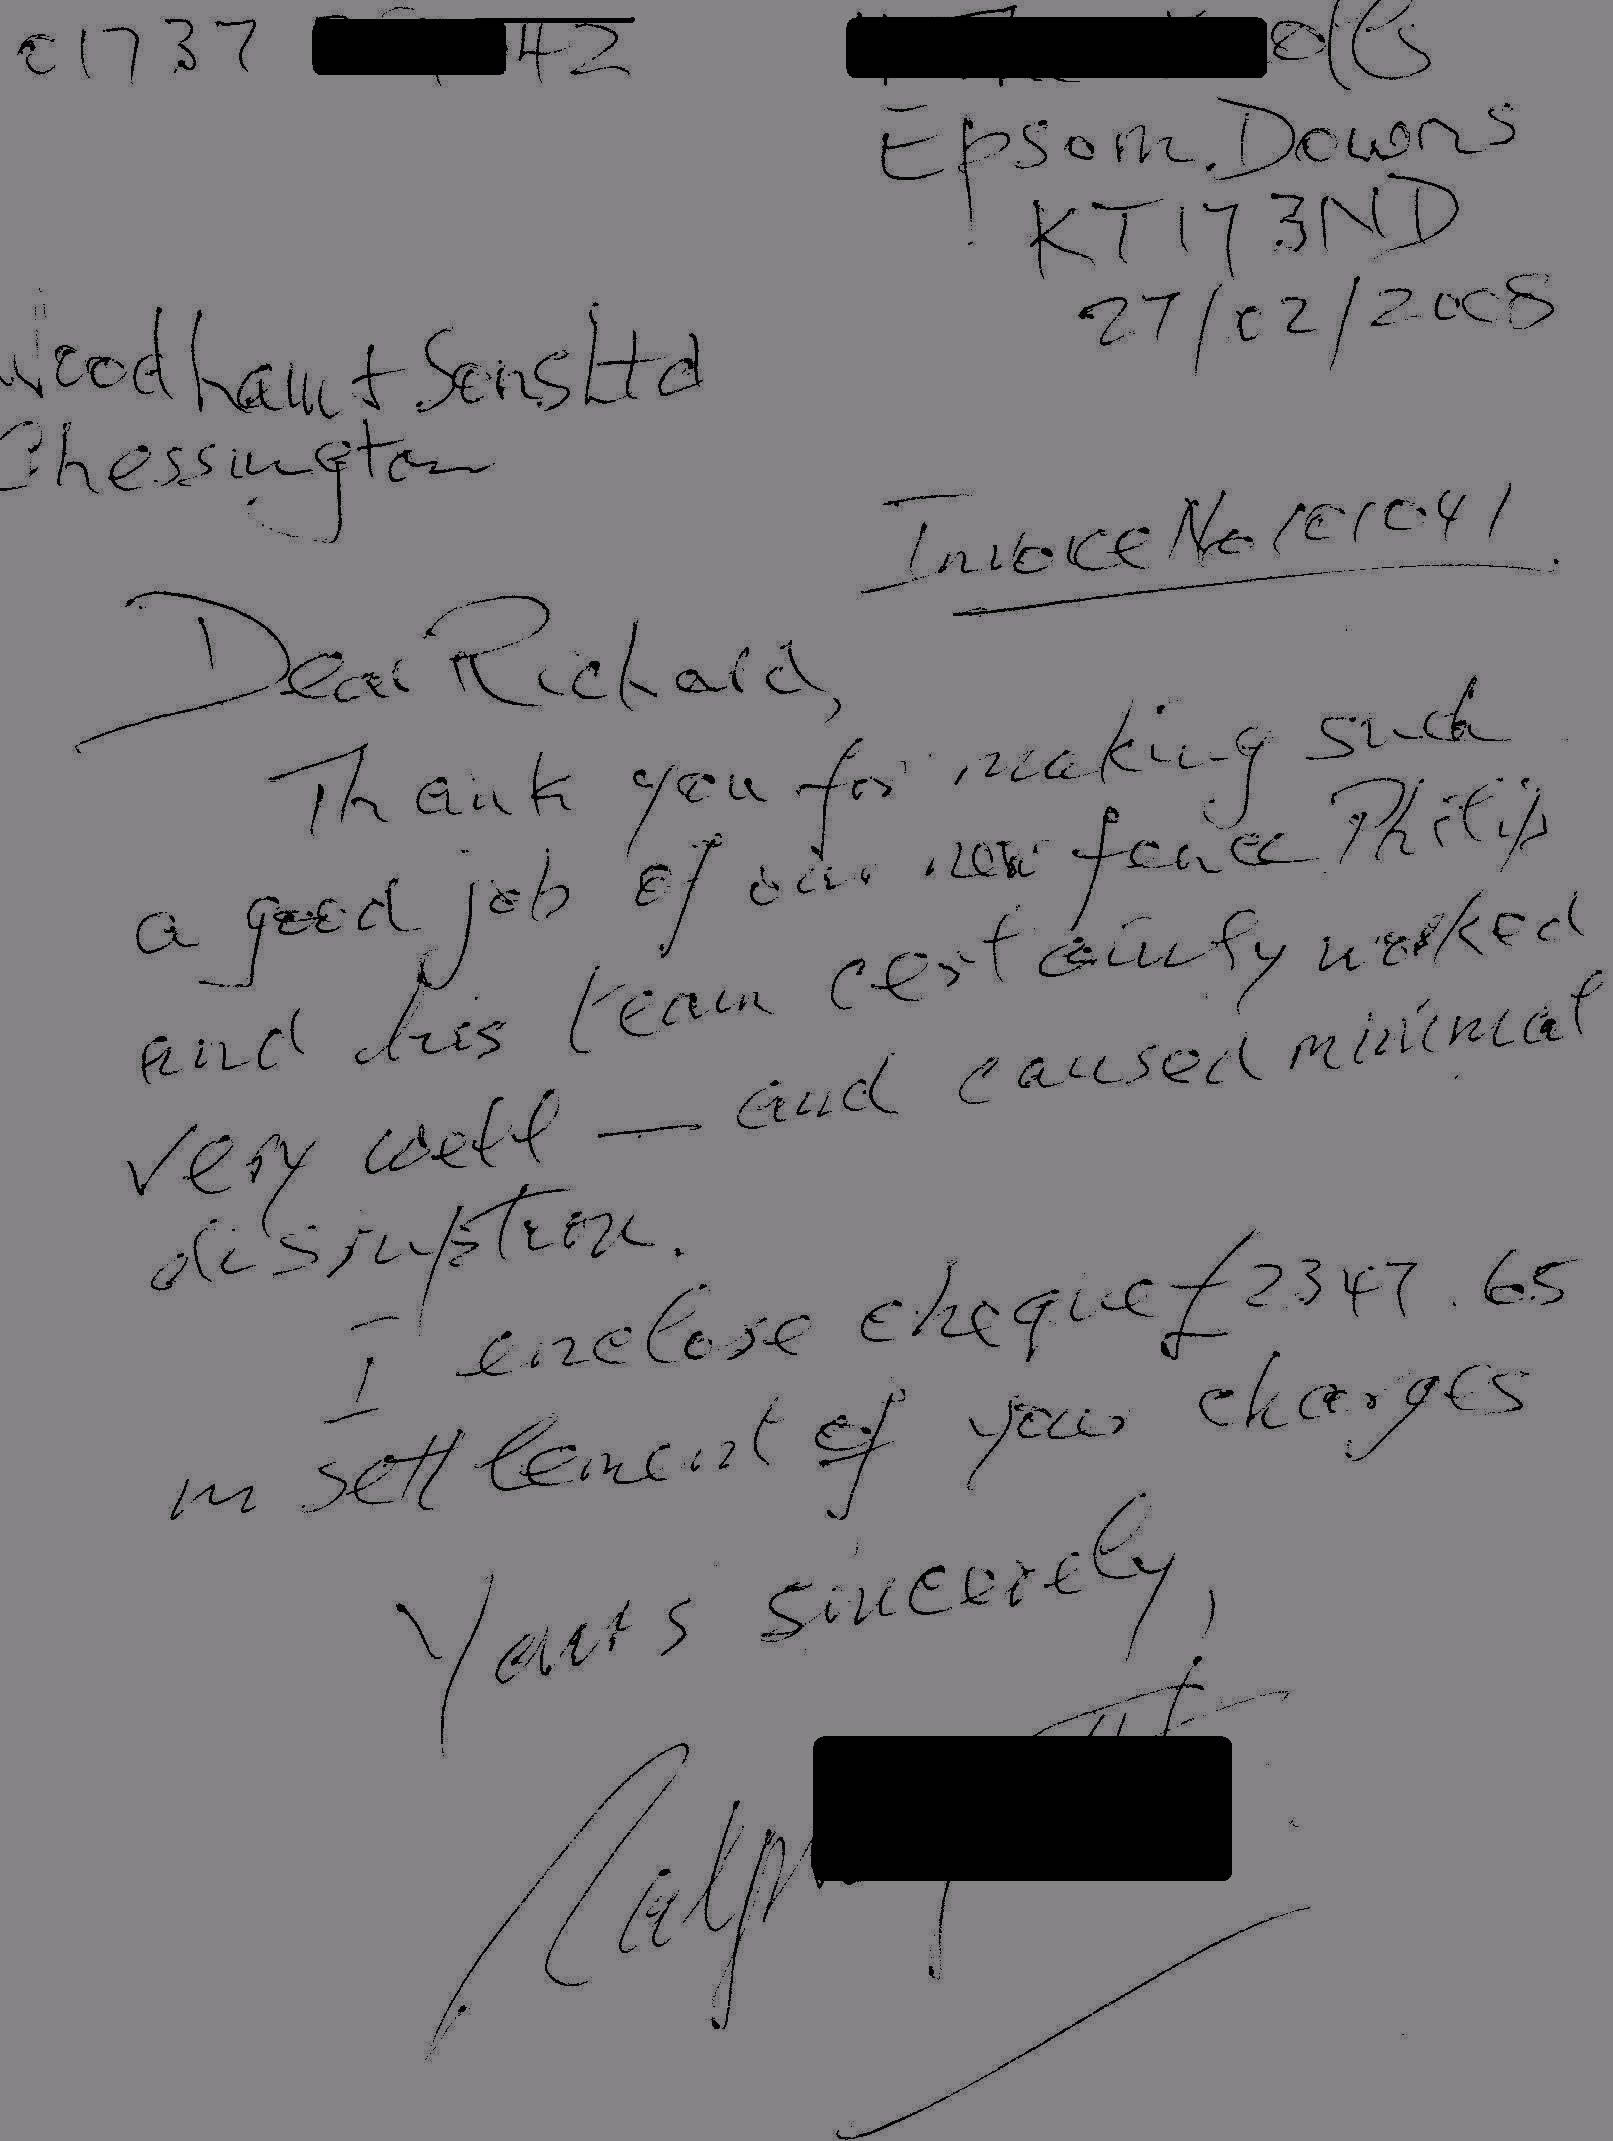 01737 42
Epsom Downs
KT17 3ND
27/02/2008
Woodham + Sons Ltd
Chessington
Invoice No 101041
Dear Richard,
Thank you for making such
a good job of our new fence Philip
and his team certainly worked
very well — and caused minimal
disruption.
I enclose cheque £2347.65
in settlement of your charges
Yours sincerely,
Ralph